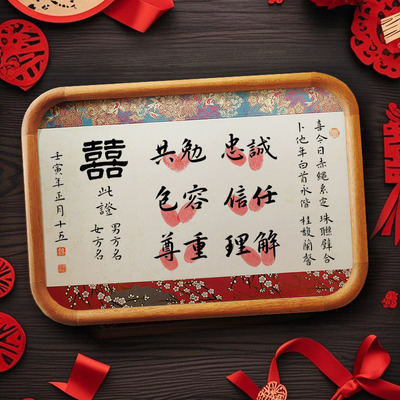 喜今日赤繩系定 珠聯璧合
卜他年白首永偕 桂馥蘭馨
共勉 忠誠
包容 信任
尊重 理解
囍
此證
男方名
女方名
壬寅年正月十五